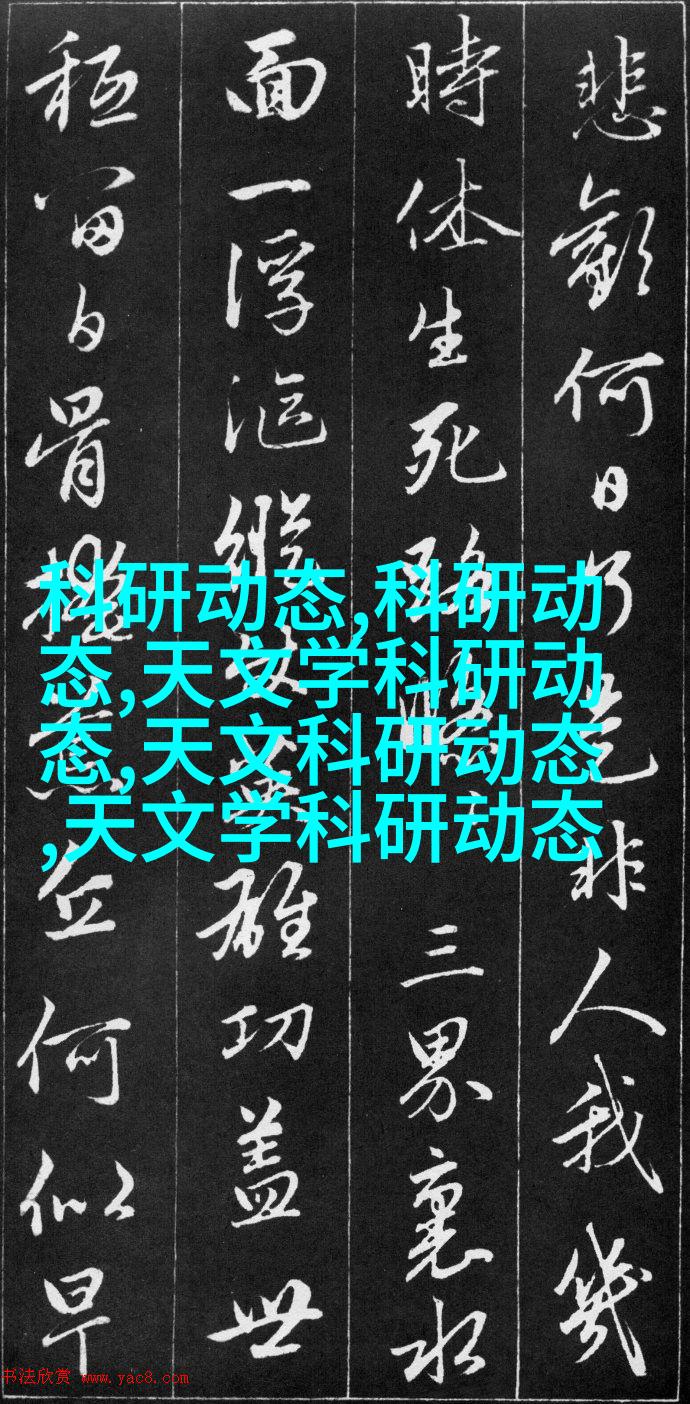 悲歡何日是非人我幾
時休生死路三界裏水
面一浮漚縱汝雄功蓋世
秪留白骨丘何似早
科研动态,科研动
态,天文学科研动
态,天文科研动态
,天文学科研动态
书法欣赏 www.yac8.com